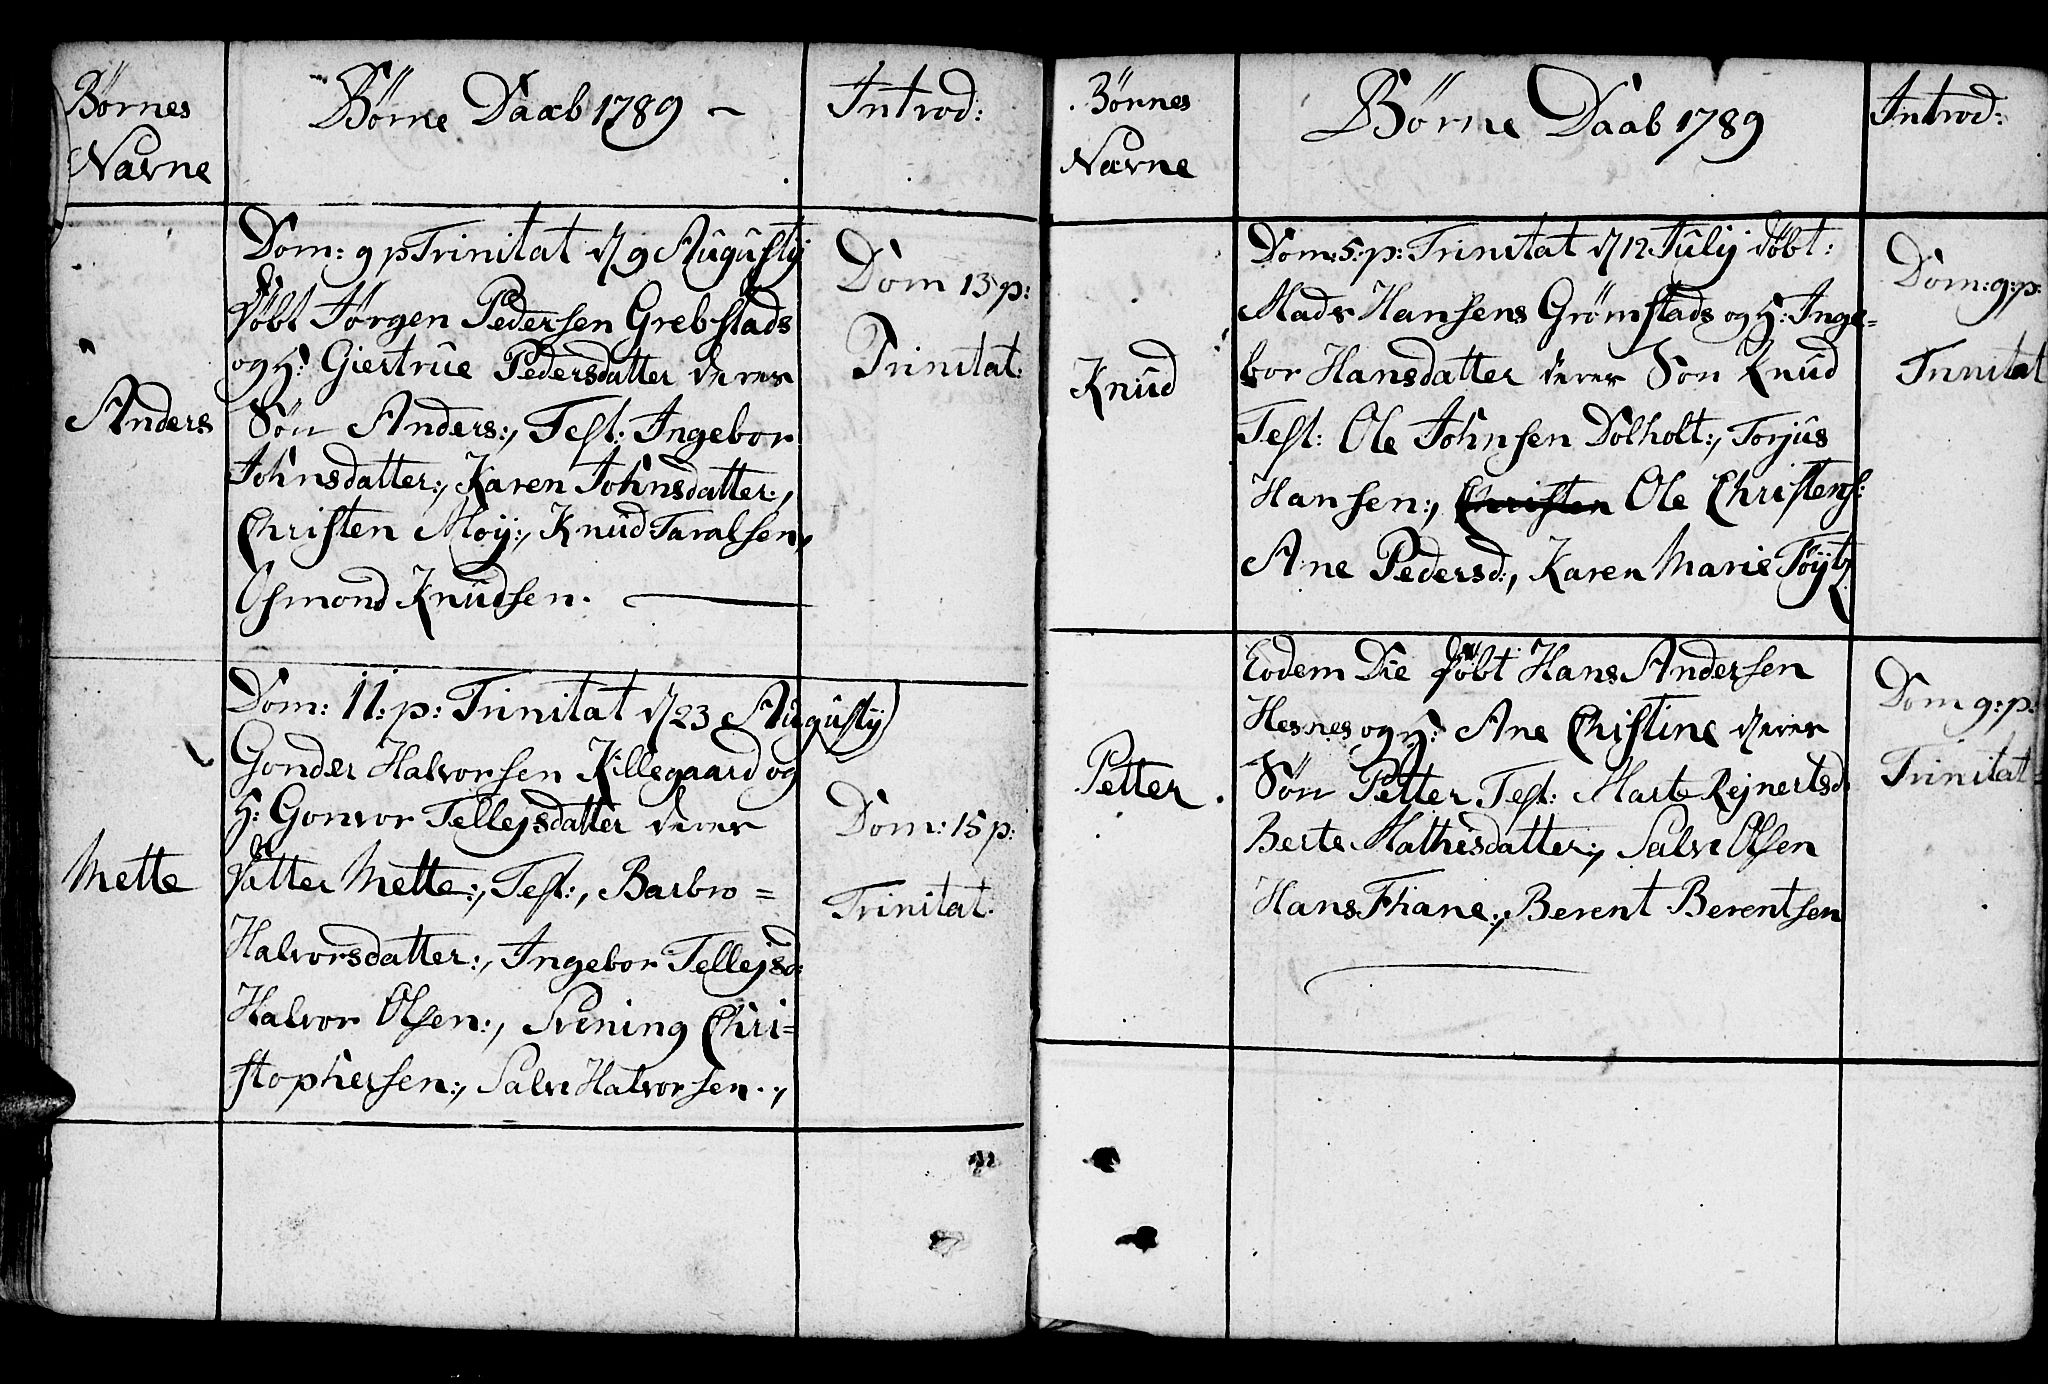 Börnes
Navne
Börne Daab 1789 -
Introd:
Anders
Dom: 9 p Trinitat d 9 Augustij
döbt Jörgen Pedersen Grebstads
og H: Giertrue Pedersdatter deres
Sön Anders:, Test: Ingebor
Johnsdatter:, Karen Johnsdatter:,
Christen Moy:, Knud Taralsen,
Osmond Knudsen.
Dom 13 p:
Trinitat:
Mette
Dom: 11: p: Trinitat d 23 Augustij
Gonder Halvorsen Killegaard og
H: Gonvor Tellejsdatter deres
datter Mette:, Test:, Barbro =
Halvorsdatter:, Ingebor Tellejsd:
Halvor Olsen:, Svening Chri=
stophersen:, Salve Halvorsen.,
Dom: 15 p:
Trinitat.
Börnes
Navne
Börne Daab 1789
Introd:
Knud
Dom: 5: p: Trinitat d 12 Julij döbt:
Mads Hansens Grömstads og H: Inge=
bor Hansdatter deres Son Knud
Test: Ole Johnsen Dolholt:, Torjus
Hansen:, Christen Ole Christens:
Ane Pedersd:, Karen Marie
Dom: 9: p:
Trinitat
Petter
Eodem Die döbt Hans Andersen
Hesnes og H: Ane Christine deres
Sön Petter Test: Marte Rejnertsd.
Berte Mathisdatter:, Salve Olsen
Hans Fhane:, Berent Berentsen
Dom 9: p:
Trinitat=